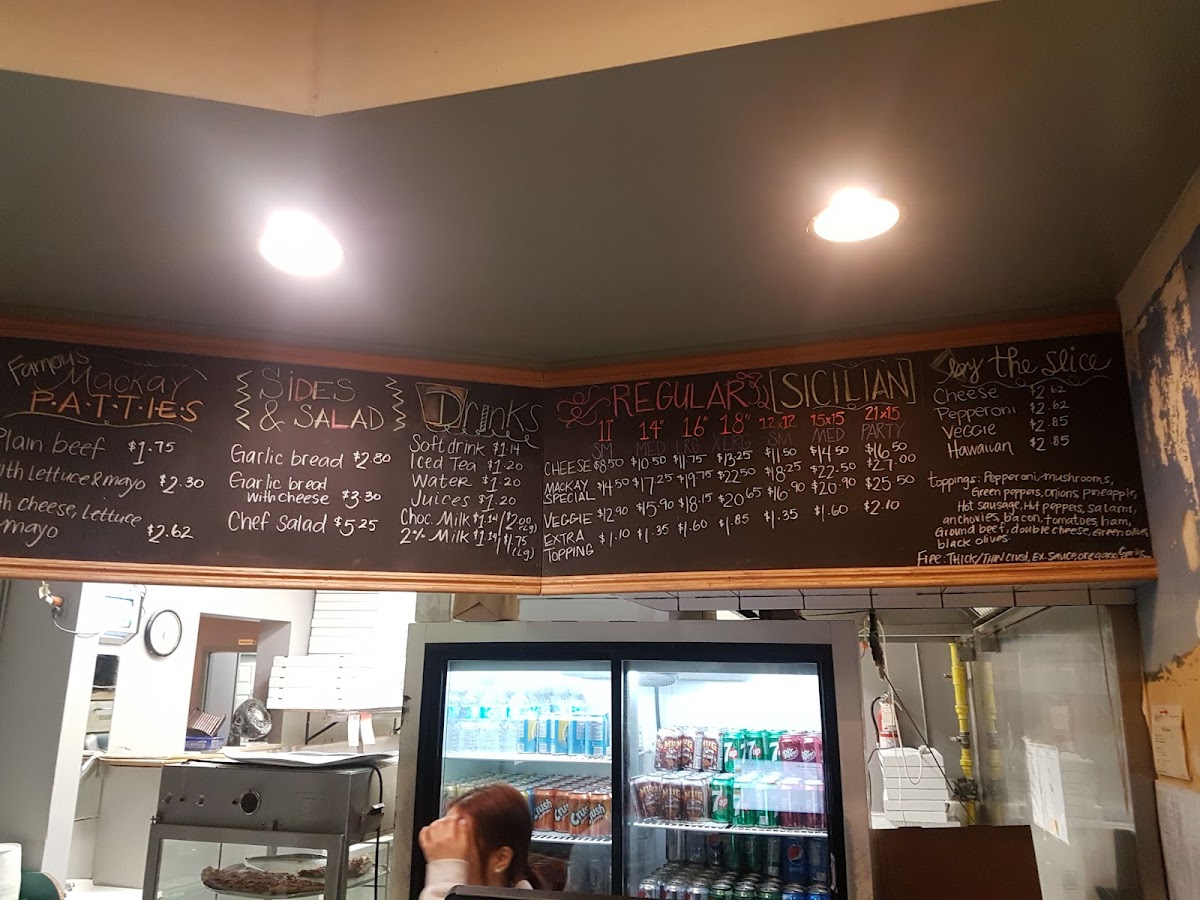 Famous
Mackay
P·A·T·T·I·E·S
Plain beef $1.75
with lettuce & mayo $2.30
with cheese, lettuce
mayo $2.62
SIDES
& SALAD
Garlic bread $2.80
Garlic bread
with cheese $3.30
Chef Salad $5.25
Drinks
Soft drink $1.14
Iced Tea $1.20
Water $1.20
Juices $1.20
Choc. Milk $1.14/$2.00 (Lg)
2% Milk $1.14/$1.75 (Lg)
REGULAR SICILIAN
11" 14" 16" 18" 12x12 15x15 21x15
SM MED LRG XLRG SM MED PARTY
CHEESE $8.50 $10.50 $11.75 $13.25 $11.50 $14.50 $16.50
MACKAY
SPECIAL $14.50 $17.25 $19.75 $22.50 $18.25 $22.50 $27.00
VEGGIE $12.90 $15.90 $18.15 $20.65 $16.90 $20.90 $25.50
EXTRA
TOPPING $1.10 $1.35 $1.60 $1.85 $1.35 $1.60 $2.10
by the slice
Cheese $2.62
Pepperoni $2.62
Veggie $2.85
Hawaiian $2.85
toppings: Pepperoni, mushrooms,
Green peppers, onions, pineapple,
Hot sausage, Hot peppers, salami,
anchovies, bacon, tomatoes, ham,
Ground beef, double cheese, Green olives,
black olives.
Free: Thick/Thin Crust, Ex. Sauce, oregano, Garlic
Crush
Crush
Crush
7